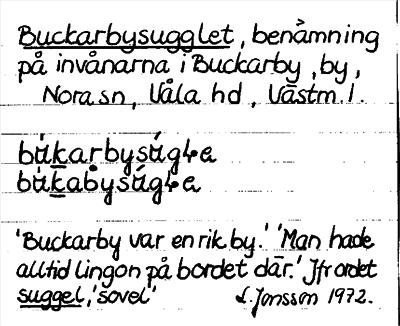 Buckarbysugglet, benämning
på invånarna i Buckarby, by,
Nora sn, Våla hd, Västm. l.
'Buckarby var en rik by.' 'Man hade
alltid lingon på bordet där.' Jfr ordet
suggel, 'sovel' L. Jonsson 1972.